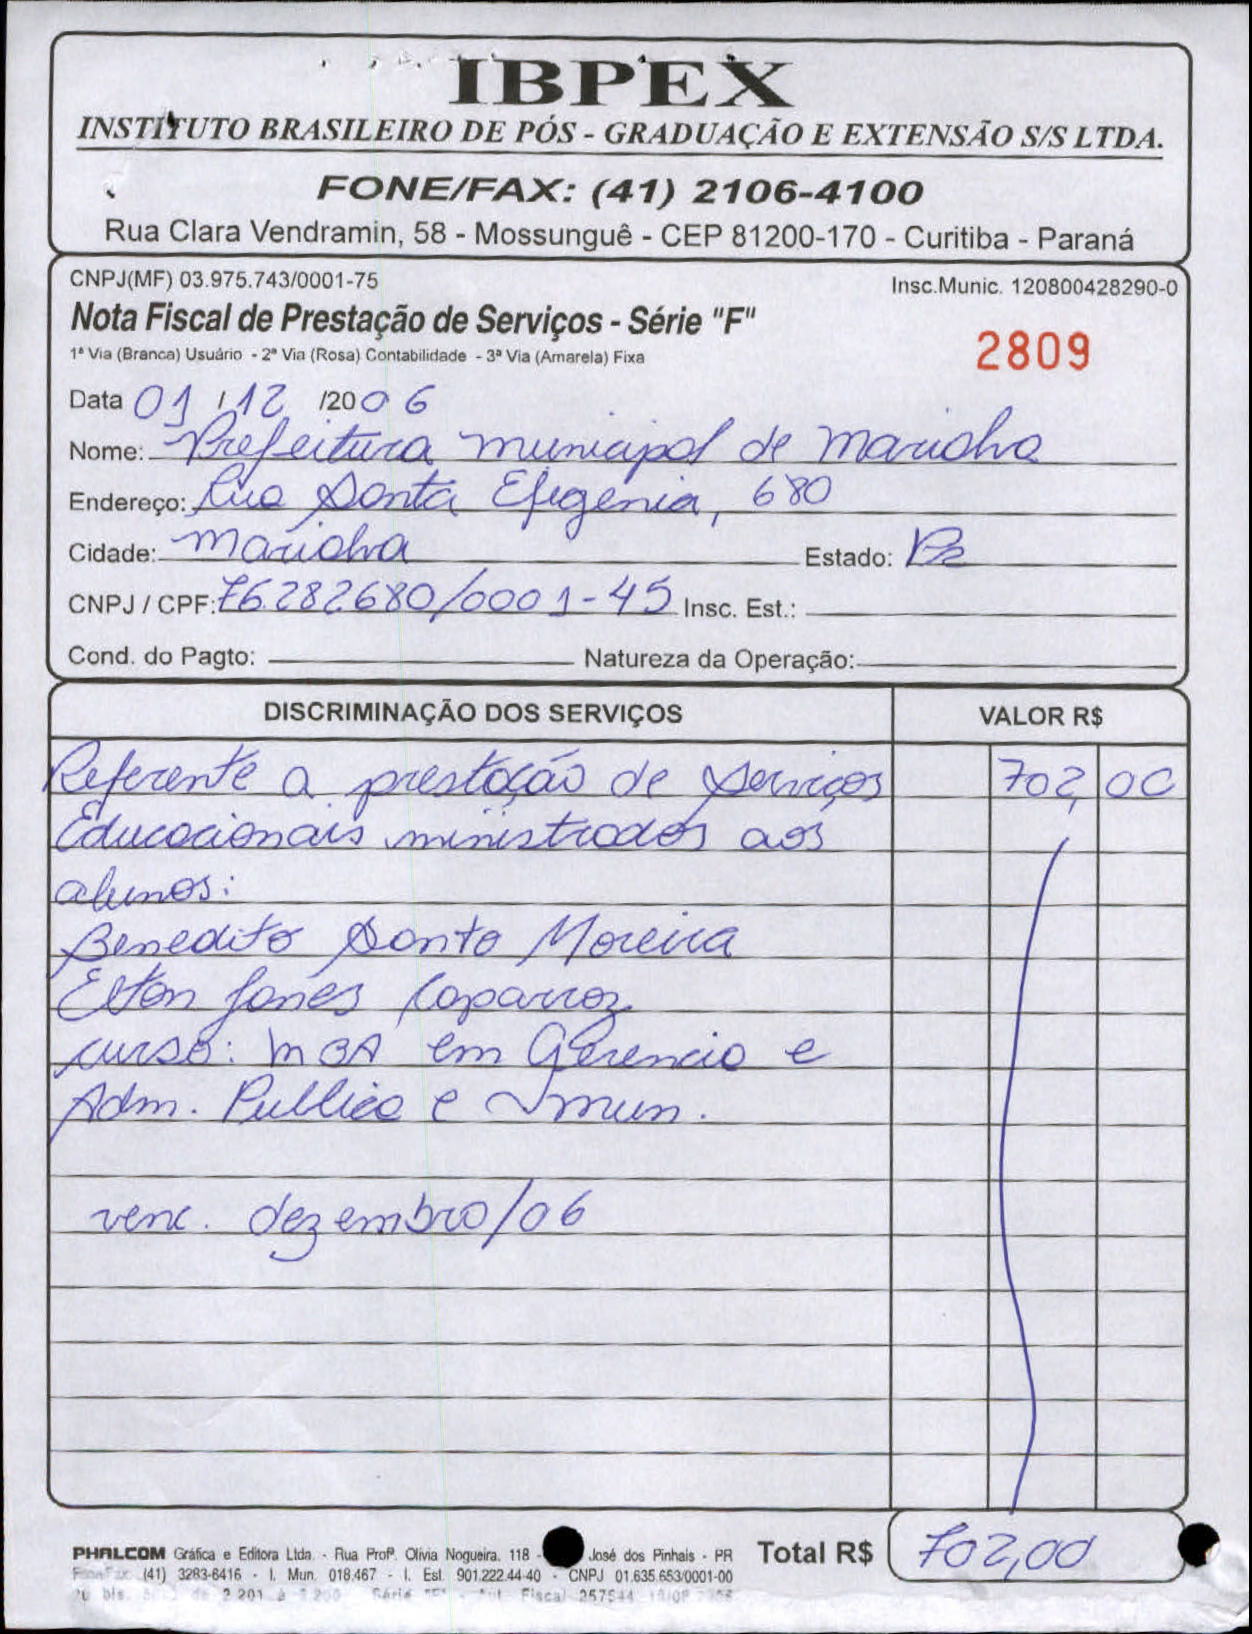 IBPEX
INSTITUTO BRASILEIRO DE PÓS - GRADUAÇÃO E EXTENSÃO S/S LTDA.
FONE/FAX: (41) 2106-4100
Rua Clara Vendramin, 58 - Mossunguê - CEP 81200-170 - Curitiba - Paraná
CNPJ(MF) 03.975.743/0001-75 Insc.Munic. 120800428290-0
Nota Fiscal de Prestação de Serviços - Série "F"
1ª Via (Branca) Usuário - 2ª Via (Rosa) Contabilidade - 3ª Via (Amarela) Fixa
2809
Data 01/12/2006
Nome: Prefeitura municipal de marialva
Endereço: Rua Santa Efigênia, 680
Cidade: marialva Estado: Pr
CNPJ / CPF: 76.282680/0001-45 Insc. Est.:
Cond. do Pagto: Natureza da Operação:
DISCRIMINAÇÃO DOS SERVIÇOS VALOR R$
Referente a prestação de Serviços 702,00
Educacionais ministrados aos
alunos:
Benedito Santo Moreira
Elton Jones Caparroz
curso: MBA em Gerencia e
Adm. Publica e mun.
venc. dezembro/06
Total R$ 702,00
PHALCOM Gráfica e Editora Ltda. - Rua Profª. Olivia Nogueira, 118 - José dos Pinhais - PR
(41) 3283-6416 - I. Mun. 018.467 - I. Est. 901.222.44-40 - CNPJ 01.635.653/0001-00
Fiscal 257544